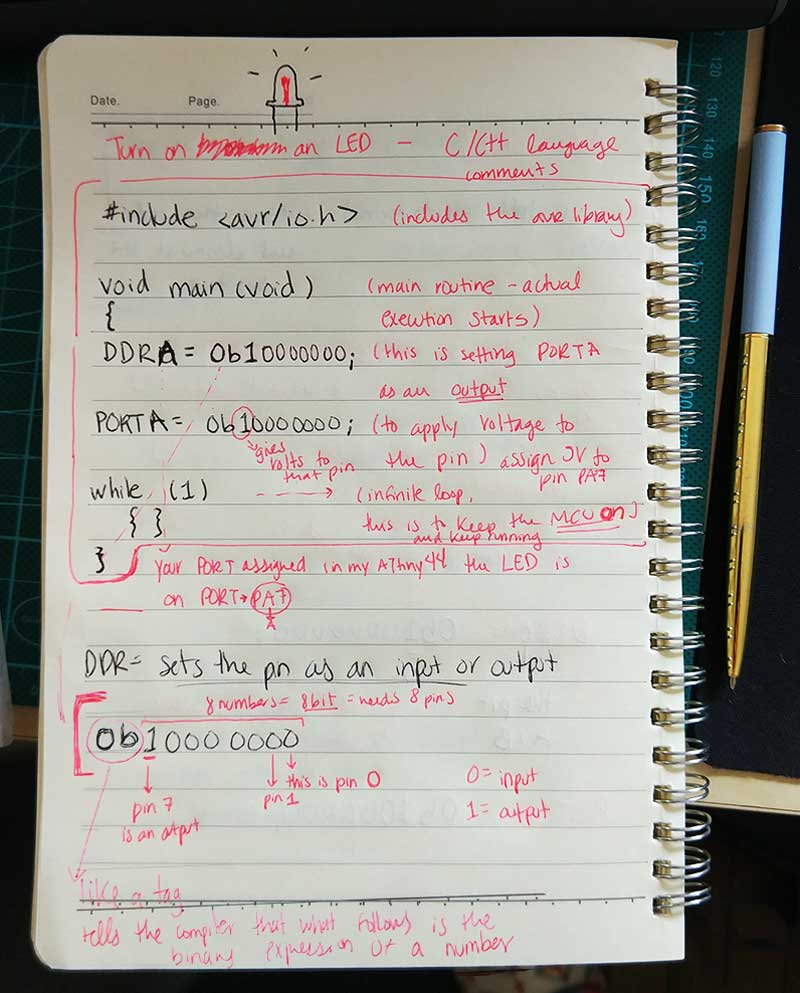 Date. Page.
Turn on an LED - C/C++ language
comments
#include <avr/io.h> (includes the avr library)
void main (void) (main routine - actual
{ execution starts)
DDRA = 0b10000000; (this is setting PORTA
as an output
PORTA = 0b10000000; (to apply voltage to
the pin) assign 5V to
pin PA7
gives
volts to
that pin
while (1) (infinite loop,
{ } this is to keep the MCU on)
and keep running
}
Your PORT assigned in my ATtiny44 the LED is
on PORT→ PA7
A
DDR= sets the pin as an input or output
8 numbers = 8bit = needs 8 pins
0b10000000
this is pin 0
pin 1
pin 7
is an output
0= input
1= output
like a tag
tells the compiler that what follows is the
binary expression of a number
7
120
130
140
150
160